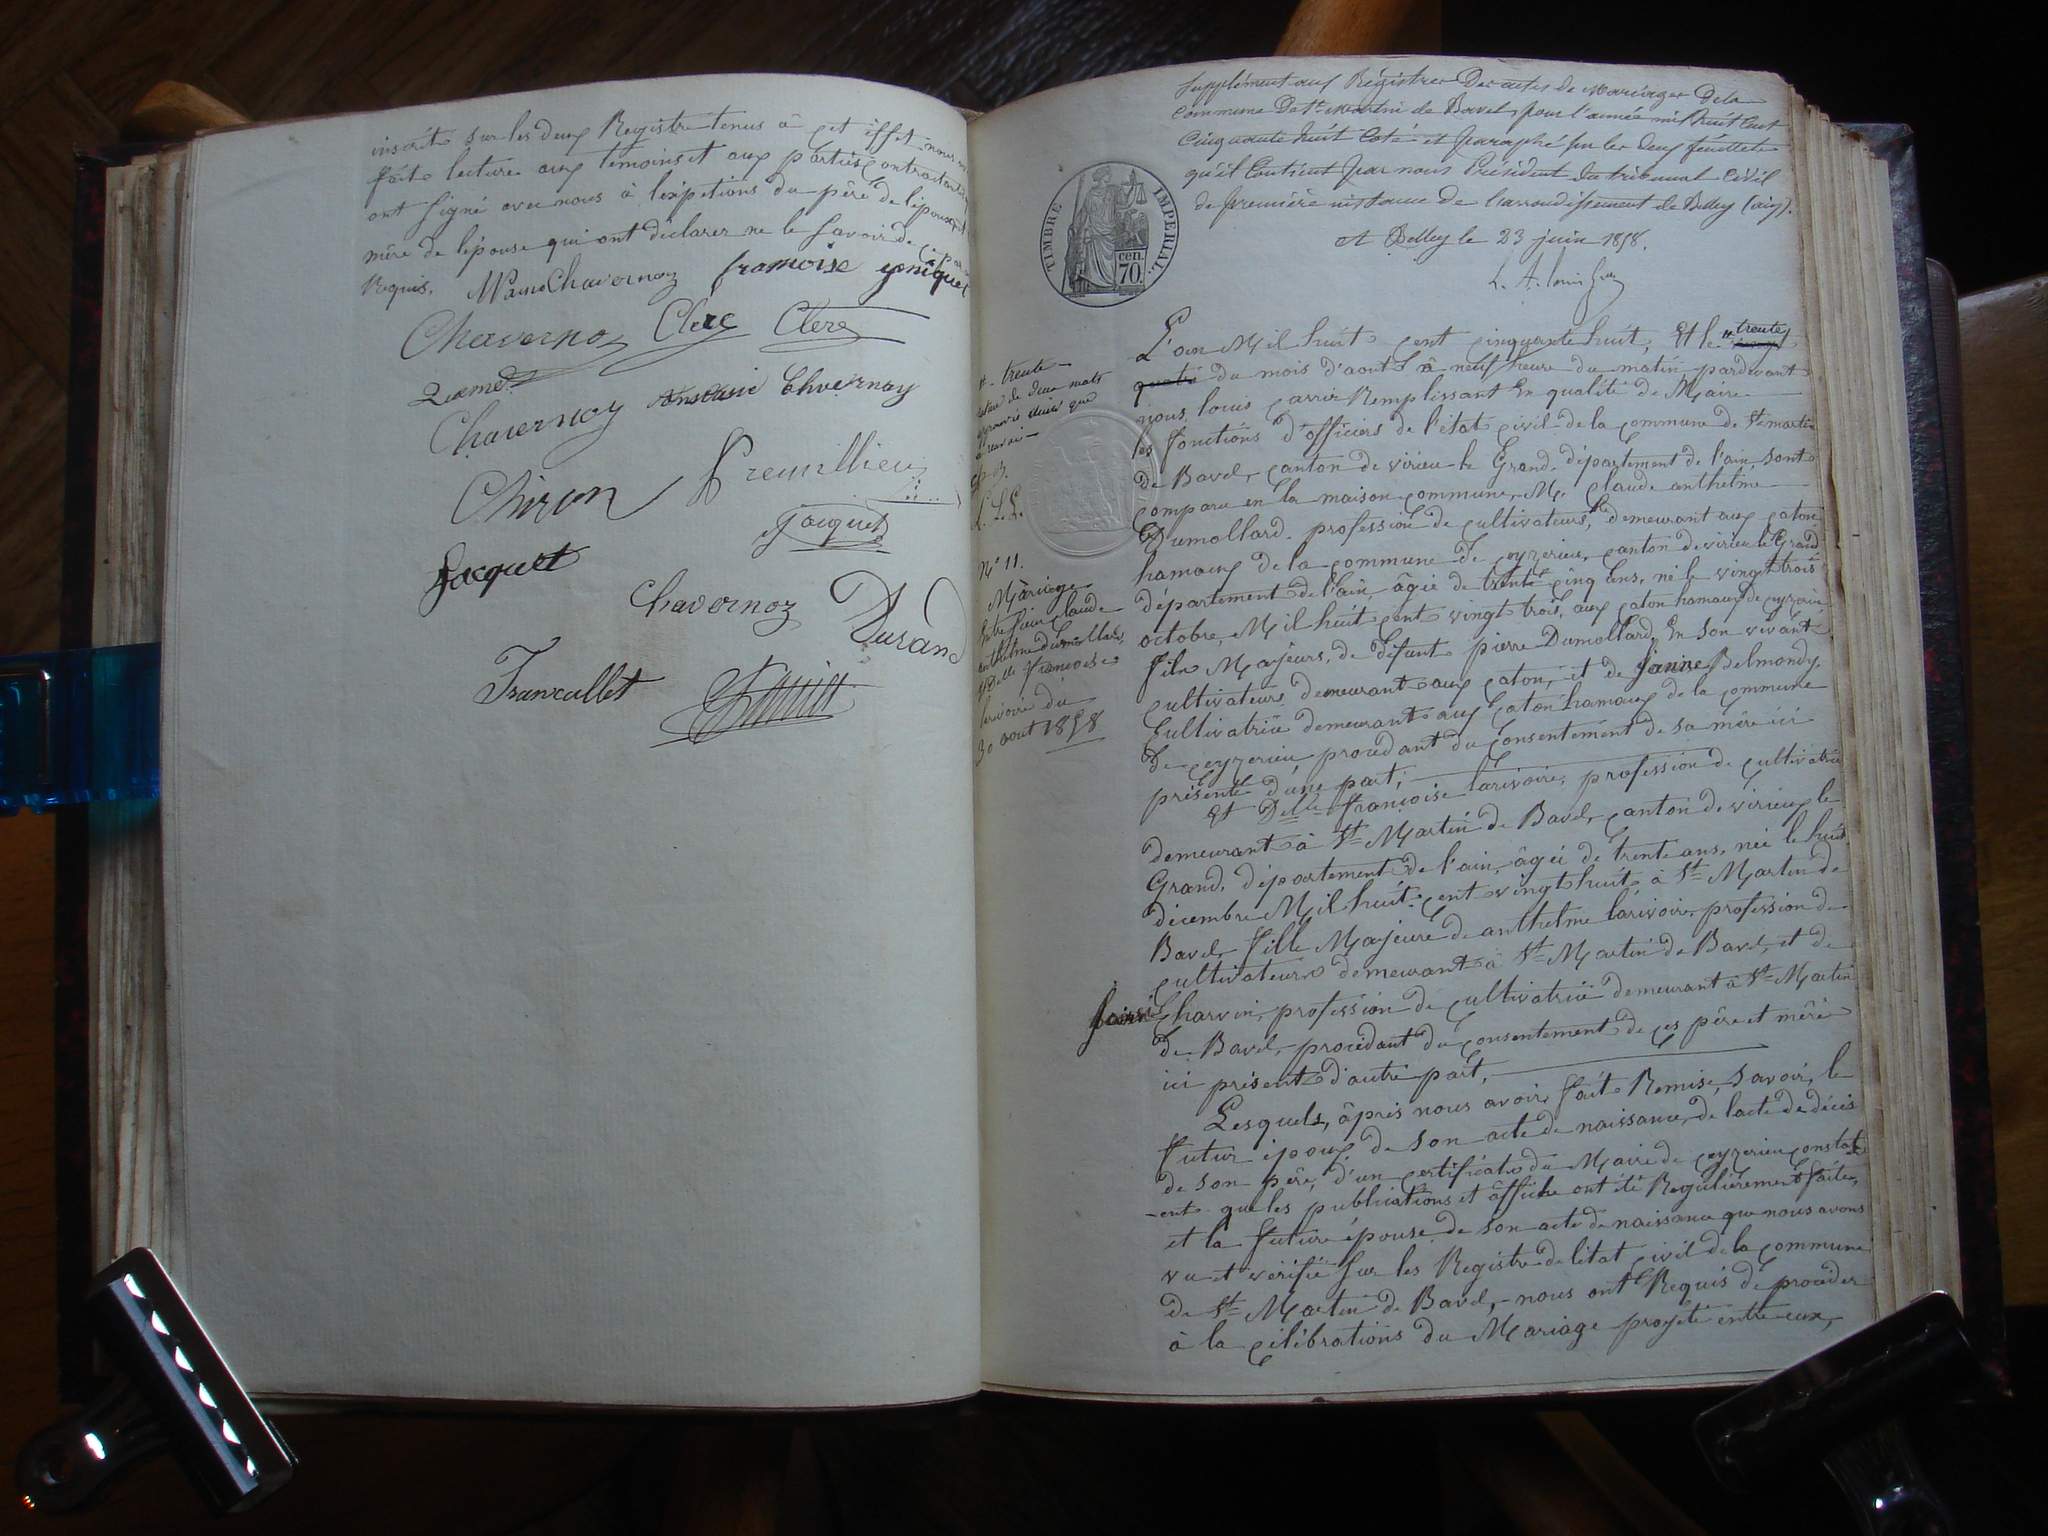 inscrité sur les deux Registre tenus à cet éffet, nous en
fait lecture aux temoins et aux partiès contractantes
ont signé avec nous à l'exêptions du père de l'époux et
mère de lépouse qui ont déclarer ne le savoir de ce
Requis. Chavernoz francoise jeniquet
Chavernoz Clerc Clerc
Chavernoy Chvernay
Chiron Premillieu
Jacquet
Jacquet
Chavernoz Durand
Francallet
Supplément aux Régistres Des actes de Mariages De la
Commune De St Martin de Bavel, pour l'année mil huit cent
Cinquante huit Coté et Paraphé sur les deux feuillets
qu'il Contient Par nous Président du tribunal Civil
de Première instance de l'arrondissement de Belley (ain).
A Belley le 23 juin 1858.
TIMBRE IMPERIAL
70. cen.
L'an Mil huit cent cinquante huit, Et le " trente
quatre du mois d'aout à neuf heure du matin, pardevant
nous, louis carrir Remplissant En qualité de Maire
les fonctions d'officiers de l'état civil de la commune de St martin
De Bavel, canton de virieu le Grand, département de l'ain sont
comparu en la maison commune, M. claude anthelme
Dumollard, profession de cultivateurs, demeurant aux catons
hamaux de la commune De ceyzerieu, canton de virieu le Grand
département de l'ain, âgée de trente cinq ans, né le vingt trois
octobre, Mil huit cent vingt trois, aux caton hamaux de ceyzerieu
fils Majeurs, de défunt pierre Dumollard, En son vivant
cultivateurs demeurant aux caton, et de Janine Belmondy,
Cultivatrice demeurant aux caton hamaux de la commune
De ceyzerieu, procedant du consentement de sa mère ici
présente d'une part;
Et Delle Françoise larivoire, profession de cultivatrice
demeurant à St Martin de Bavel, canton de virieux le
Grand, département de l'ain, âgée de trente ans, née le huit
décembre Mil huit cent vingt huit, à St Martin de
Bavel, Fille Majeure de anthelme larivoire, profession de
cultivateurs demeurant à St Martin de Bavel, et de
Charvin, profession de cultivatrice demeurant à St Martin
de Bavel, procédant du consentement de ces père et mère
ici présent d'autre part,
Lesquels, âpris nous avoir, fait Remise, savoir, le
Futur époux de son acte de naissance, de lacte de décès
de son père, d'un certificat du Maire de ceyzerieu constat
-ent que les publications et âffiche ont été Regulièrement faites,
et la future épouse de son acte de naissance que nous avons
vu et vérifié sur les Registre de létat civil de la commune
de St Martin de Bavel, - nous ont Requis de procéder
à la célébrations du Mariage projeté entre eux,
# - trente -
N° 11.
Mariage
Entre Sieur Claude
anthelme dumollard
& Delle francoise
larivoire du
30 aout 1858